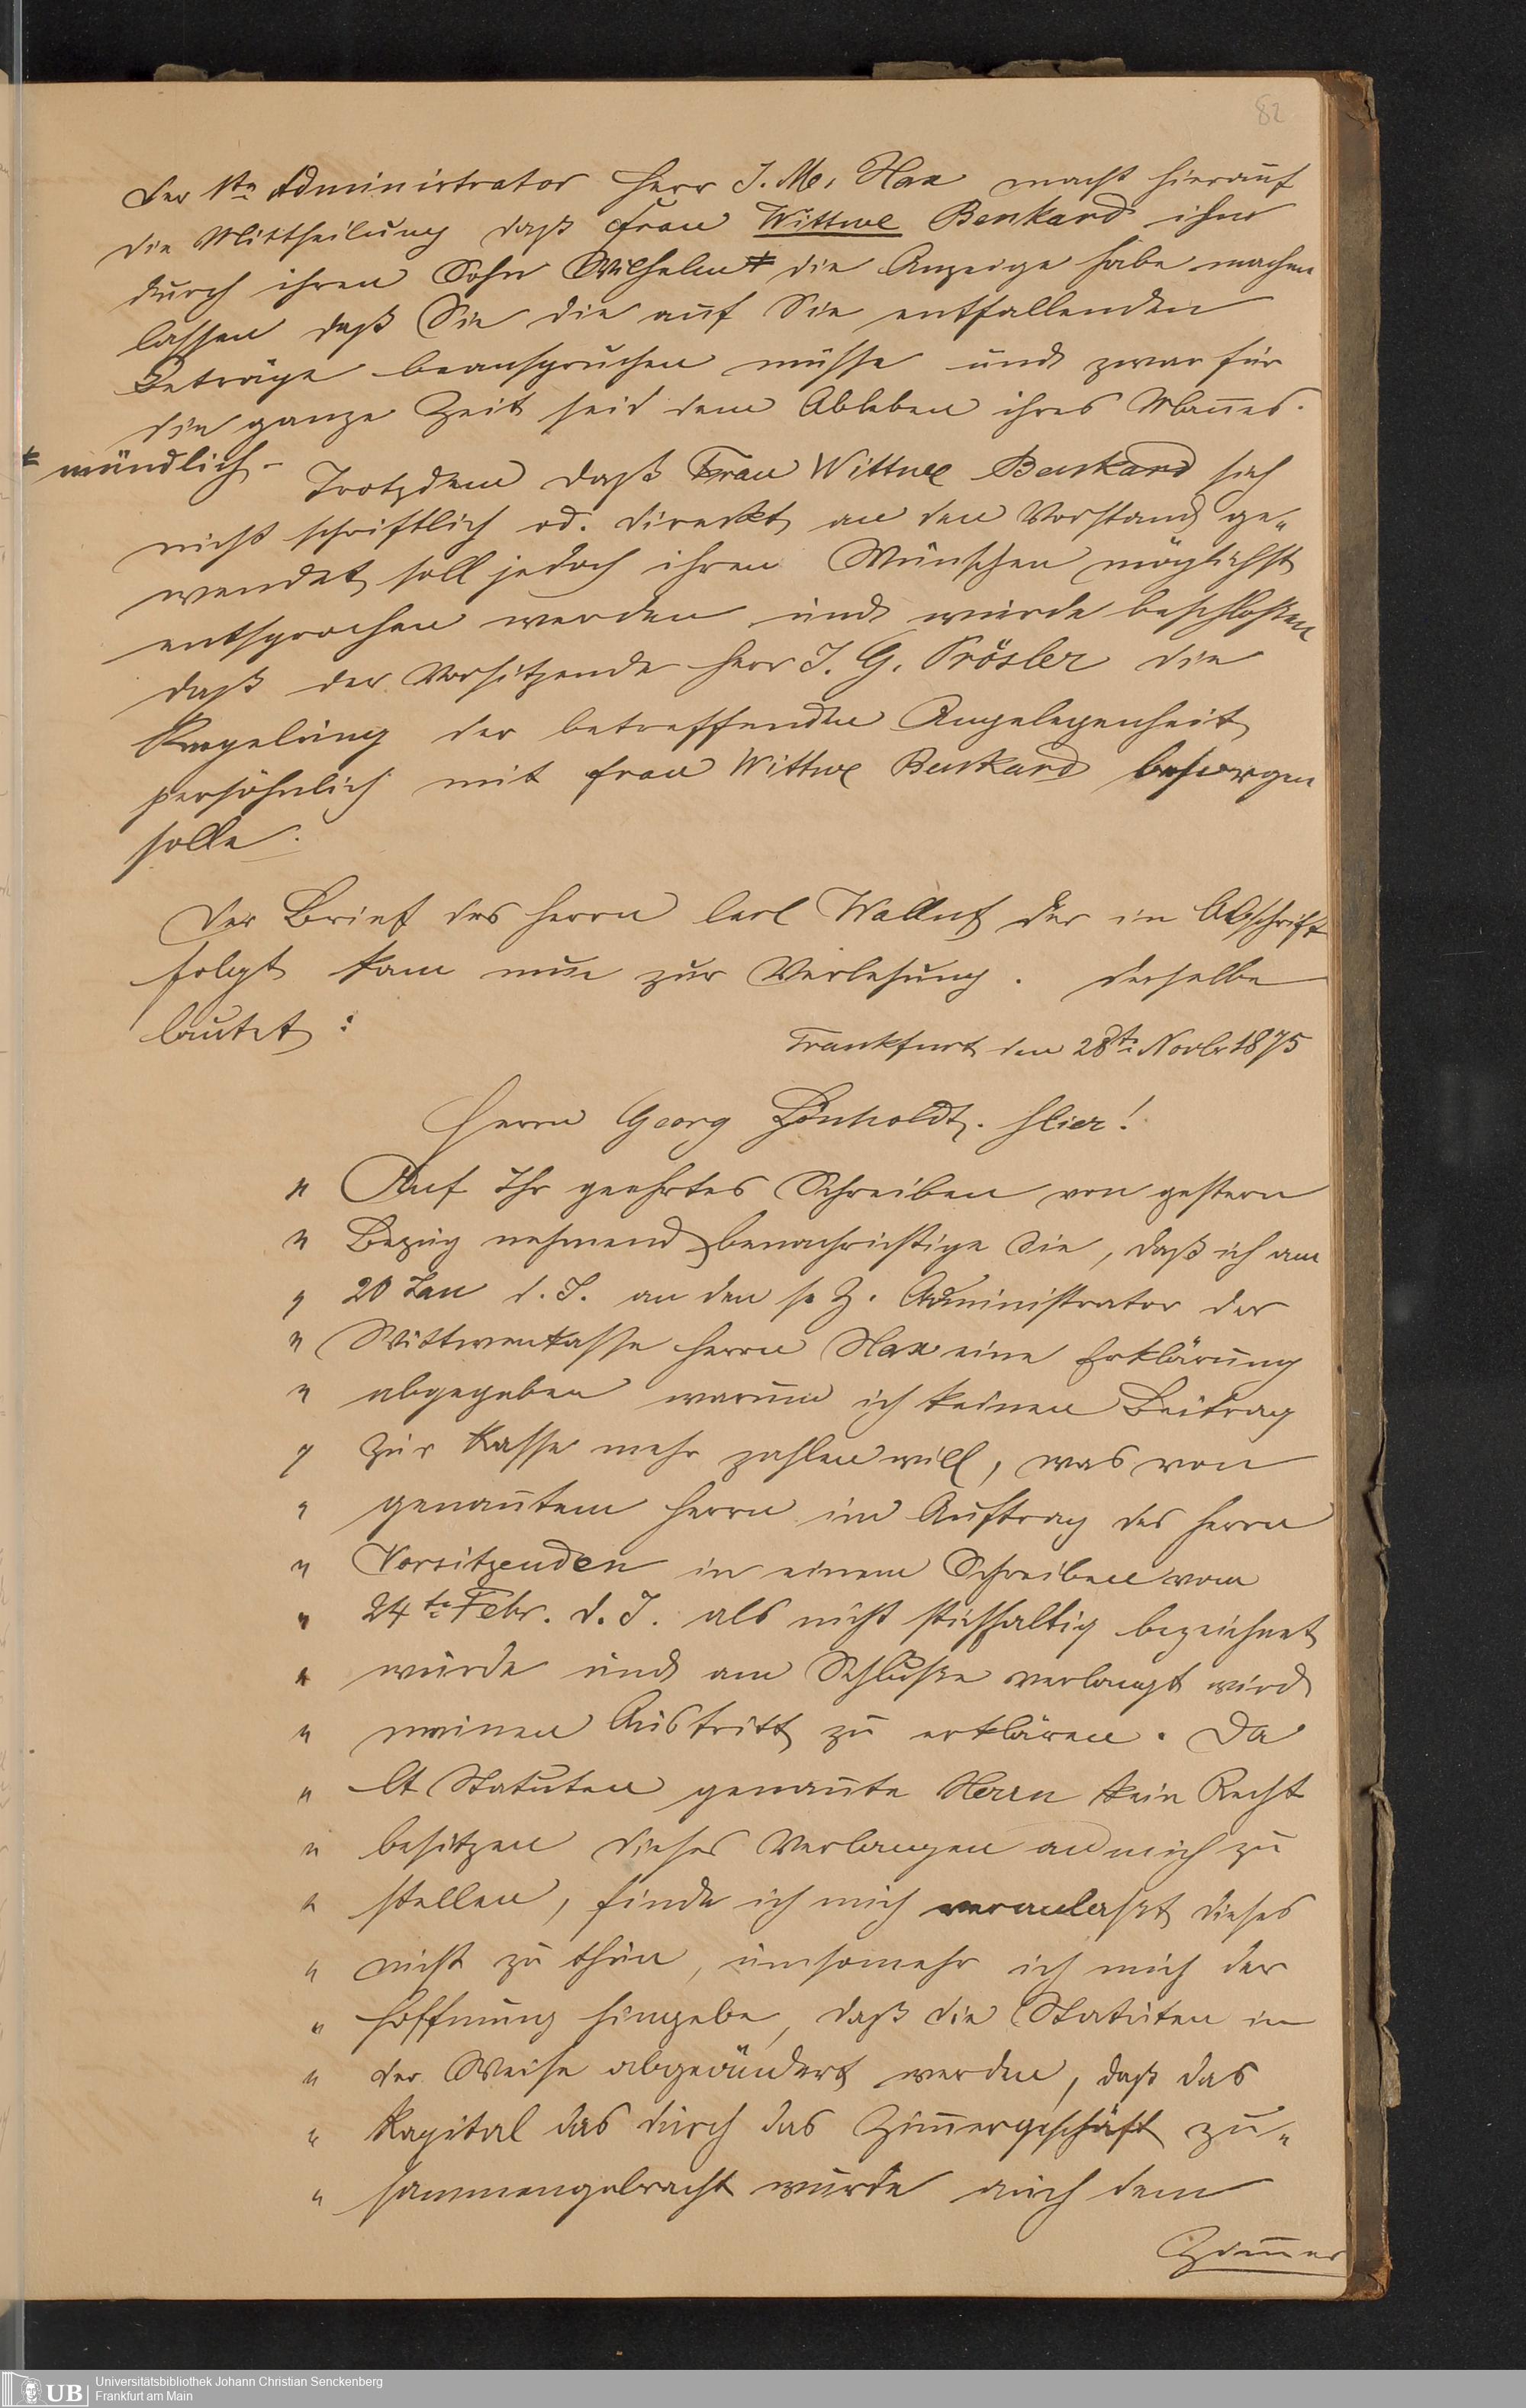 82
Der 1te Administrator Herr J. M. Hax macht hierauf
die Mittheilung daß Frau Wittwe Benkard ihm
durch ihren Sohn Wilhelm ⧧ die Anzeige habe machen
lassen daß Sie die auf Sie entfallenden
Beträge beanspruchen müsse und zwar für
die ganze Zeit seid dem Ableben ihres Mañes.
⧧ mündlich -
Trotzdem daß Frau Wittwe Benkard sich
nicht schriftlich od. direckt an den Vorstand ge„
wendet soll jedoch ihren Wünschen möglichst
entsprochen werden und wurde beschloßen
daß der Vorsitzende Herr J. G. Prösler die
Regelung der betreffenden Angelegenheit
persöhnlich mit Frau Wittwe Benkard besorgen
solle.
Der Brief des Herrn Carl Walluf der in Abschrift
folgt kam nun zur Verlesung. Derselbe
lautet:
Frankfurt den 28te Novbr 1875
Herrn Georg Lönholdt. Hier!
„ Auf Ihr geehrtes Schreiben von gestern
„ Bezug nehmend benachrichtige Sie, daß ich am
„ 20 Jan d. J. an den s. Z. Administrator der
„ Wittwenkasse Herrn Hax eine Erklärung
„ abgegeben warum ich keinen Beitrag
„ zur Kasse mehr zahlen will, was von
„ genañtem Herrn im Auftrag des Herrn
„ Vorsitzenden in einem Schreiben vom
„ 24te Febr. d. J. als nicht stichhaltig bezeichnet
„ wurde und am Schluße verlangt wird
„ meinen Austritt zu erklären. Da
„ lt Statuten genañte Herrn kein Recht
„ besitzen dieses Verlangen an mich zu
„ stellen, finde ich mich veranlaßt dieses
„ nicht zu thun, umsomehr ich mich der
„ Hoffnung hingebe, daß die Statuten in
„ der Weise abgeändert werden, daß das
„ Kapital das durch das Zim̃ergeschäft zu„
„ sammengebracht wurde auch dem
Zim̃er
UB Universitätsbibliothek Johann Christian Senckenberg
Frankfurt am Main